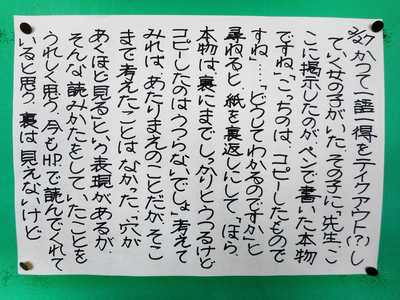 かつて一語一得をテイクアウト(?)し
ていく女の子がいた。その子に「先生、こ
こに掲示したのがペンで書いた本物
ですね」「こっちのは、コピーしたもので
すね」…「どうしてわかるのですか」と
尋ねると、紙を裏返しにして「ほら、
本物は、裏にまでしっかりとうつるけど
コピーしたのはうつらないでしょ」考えて
みれば、あたりまえのことだが、そこ
まで考えたことはなかった。「穴が
あくほど見る」という表現があるが、
そんな読みかたをして、いたことを
うれしく思う。今もHPで読んでくれて
いると思う。裏は見えないけど